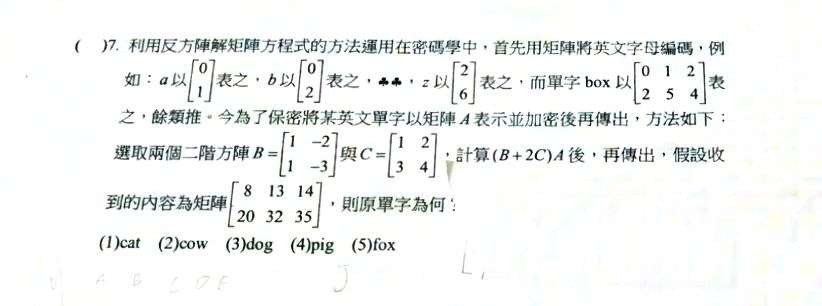 ( )7. 利用反方陣解矩陣方程式的方法運用在密碼學中，首先用矩陣將英文字母編碼，例
如：a以[0 1]表之，b以[0 2]表之，♣♣，z以[2 6]表之，而單字 box 以[0 1 2 2 5 4]表
之，餘類推。今為了保密將某英文單字以矩陣A表示並加密後再傳出，方法如下：
選取兩個二階方陣 B=[1 -2 1 -3]與C=[1 2 3 4]，計算(B+2C)A後，再傳出，假設收
到的內容為矩陣[8 13 14 20 32 35]，則原單字為何？
(1)cat (2)cow (3)dog (4)pig (5)fox